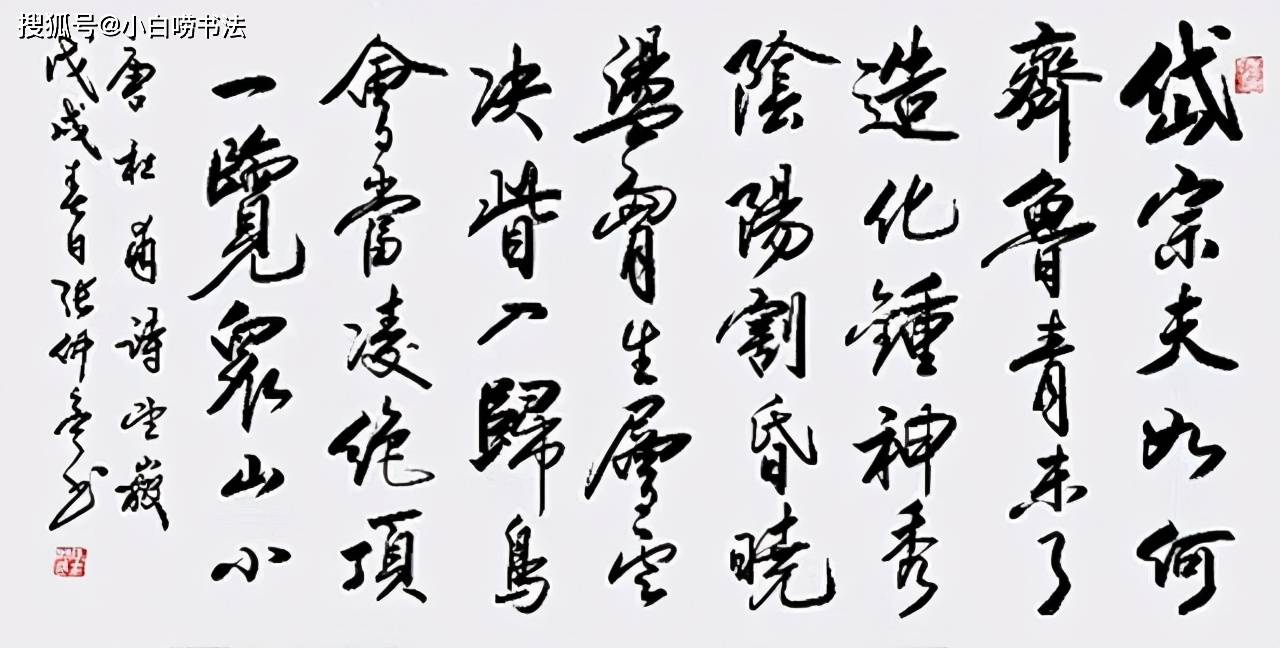 搜狐号@小白唠书法
岱宗夫如何
齊魯青未了
造化鍾神秀
陰陽割昏曉
盪胷生層雲
决眥入歸鳥
會當凌絶頂
一覽眾山小
唐杜甫詩望嶽
戊戌春日张仲亭书